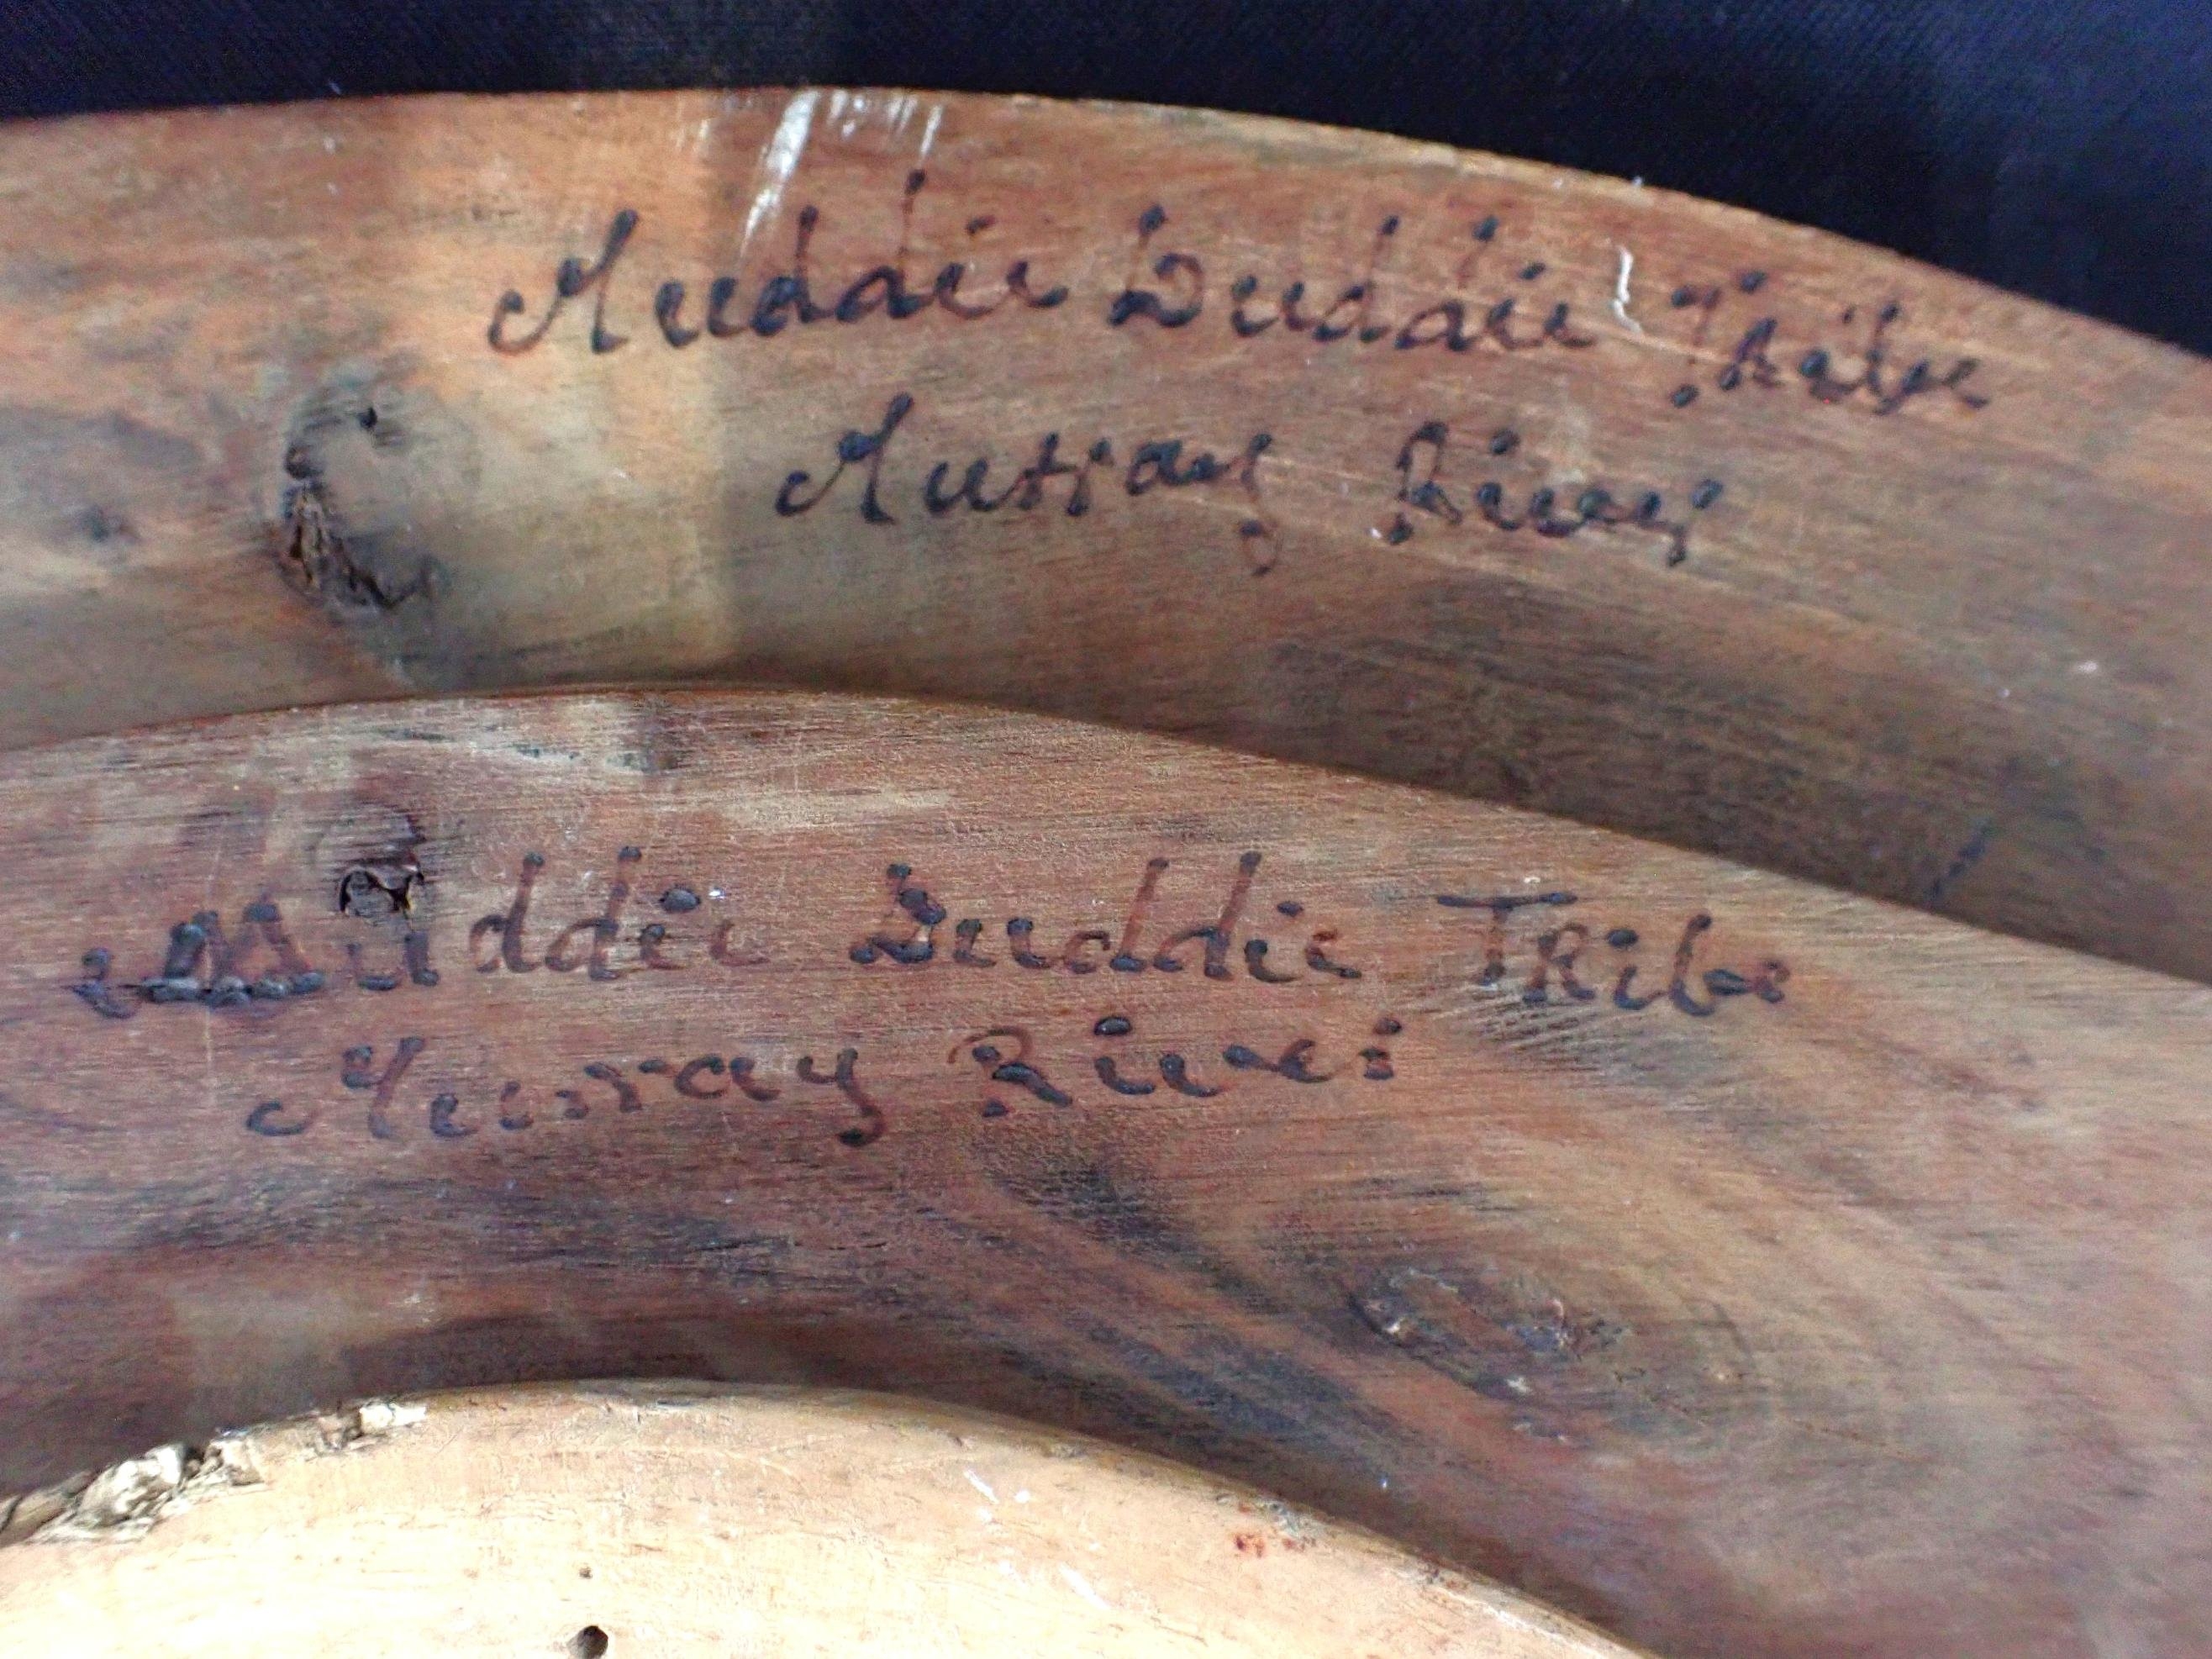 Muddie Duddie Tribe
Murray River
Muddie Duddie Tribe
Murray River